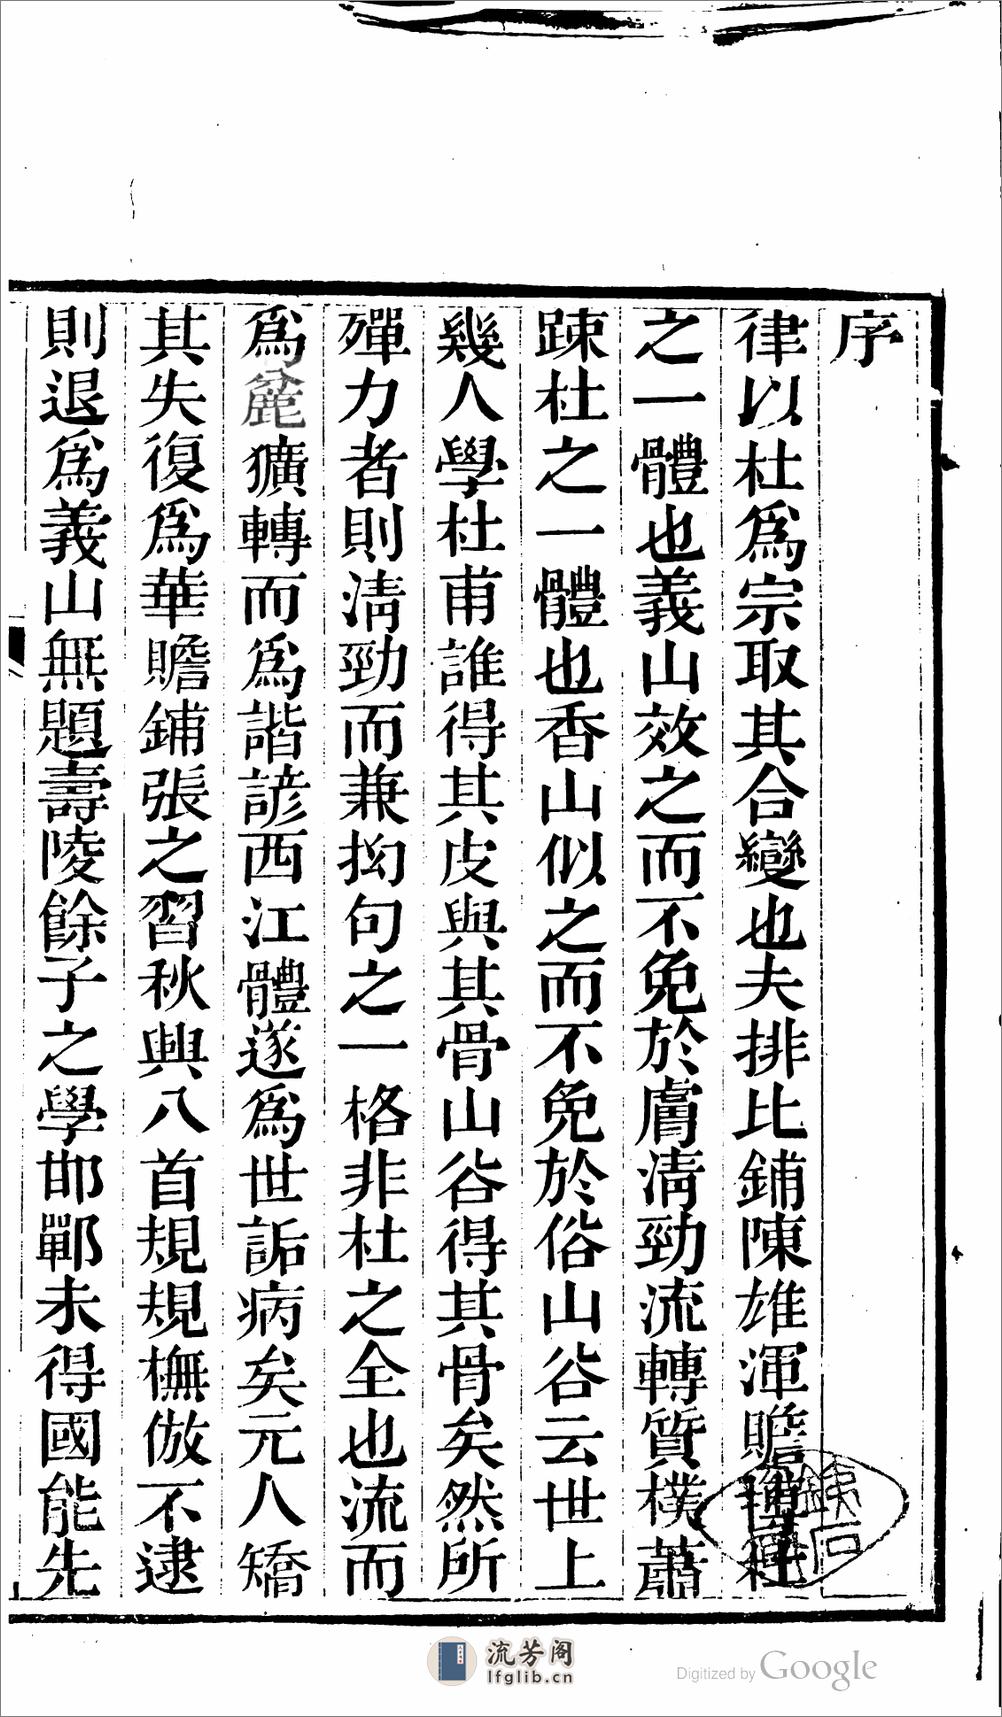 序
律以杜爲宗取其合變也夫排比鋪陳雄渾贍博杜
之一體也義山效之而不免於膚淸勁流轉質樸蕭
踈杜之一體也香山似之而不免於俗山谷云世上
幾人學杜甫誰得其皮與其骨山谷得其骨矣然所
殫力者則淸勁而兼拗句之一格非杜之全也流而
爲麄獷轉而爲諧諺西江體遂爲世詬病矣元人矯
其失復爲華贍鋪張之習秋興八首規規橅倣不逮
則退爲義山無題壽陵餘子之學邯鄲未得國能先
流芳阁
lfglib.cn
Digitized by Google